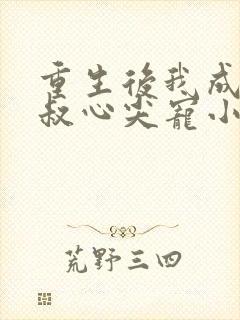 重生後我成
叔心尖寵小
荒野三四